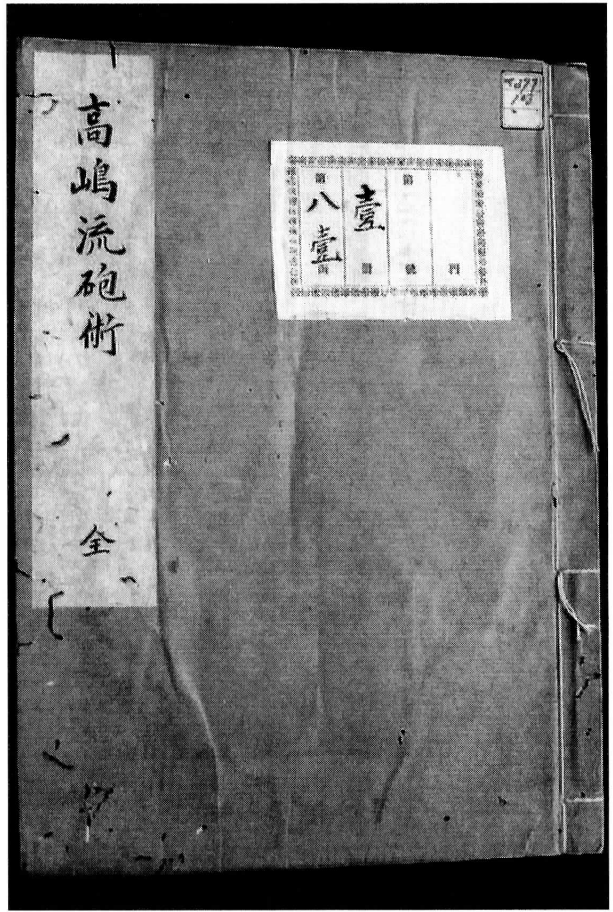 高嶋流砲術 全
門
第 號
壹 冊
第八壹函